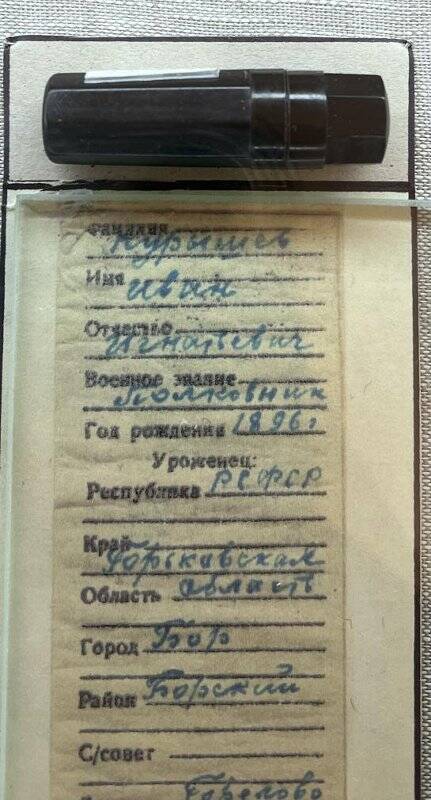 Фамилия Курышев
Имя Иван
Отчество Игнатьевич
Военное звание Полковник
Год рождения 1896г
Уроженец:
Республика РСФСР
Край Горьковская
Область область
Город Бор
Район Борский
С/совет